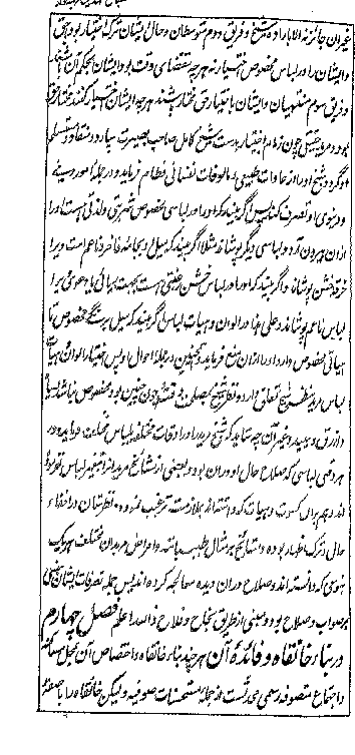 غیر آن جائز نه الا باراده شیخ و فریق دوم متوسطان و حال ایشان ترک اختیار بود و حق
و ایشان را در لباس مخصوص اختیار نه هرچه مقتضای وقت بود ایشان بحکم آن باشند
و فریق سوم منتهیان و ایشان باختیار حق مختار باشند هرچه ایشان اختیار کنند مختار حق
بود و مرید چون زمام اختیار بدست شیخ کامل صاحب بصیرت سپارد و منقاد و مستسلم
او گردد شیخ او را از عادات طبیعی و مالوفات نفسانی فطام فرماید و در جمله امور دینی
و دنیوی او تصرف کند پس اگر بیند که او را در لباسی مخصوص شهرتی و لذتی است او را
از آن بیرون آرد و لباسی دیگر پوشاند مثلا اگر بیند که میل به جامه فاخر و ناعم است ویرا
خرقه خشن پوشاند و اگر بیند که او را در لباس خشن رغبتی هست بجهت ریائی یا دعوتی ویرا
لباس ناعم پوشاند و علی هذا در الوان و هیات لباس اگر بیند که میل برنگی مخصوص یا
هیاتی مخصوص دارد او را از آن منع فرماید و همچنین در جمله احوال و پس اختیار الوان و هیات
لباس مرید بنظر شیخ تعلق دارد و نظر شیخ بمصلحت وقت
ازرق و سپید و غیر آن چه شاید که شیخ مرید را در اوقات مختلفه لباس مختلف فرماید و در
هر وقتی لباسی که صلاح حال او در آن بود و بعضی از مشایخ مریدانرا تغییر لباس نفرموده
اند و هم بر آن کسوت و هیات که داشته‌اند
حال و ترک اظهار بوده و مشایخ بر مثال طبیب باشند و امراض مریدان مختلف هر یک
بنوعی که دانسته اند و صلاح در آن دیده معالجه کرده اند پس جمله تصرفات ایشان مبنی
بر صواب و صلاح بود و مبنی از طریق نجاح و فلاح والله اعلم فصل چهارم
در بناء خانقاه و فائدهٔ آن هرچند بناء خانقاه و اختصاص آن بمحل مساکنه
و اجتماع متصوفه رسمی محدث است از جمله مستحسنات صوفیه ولیکن خانقاه را با صفه